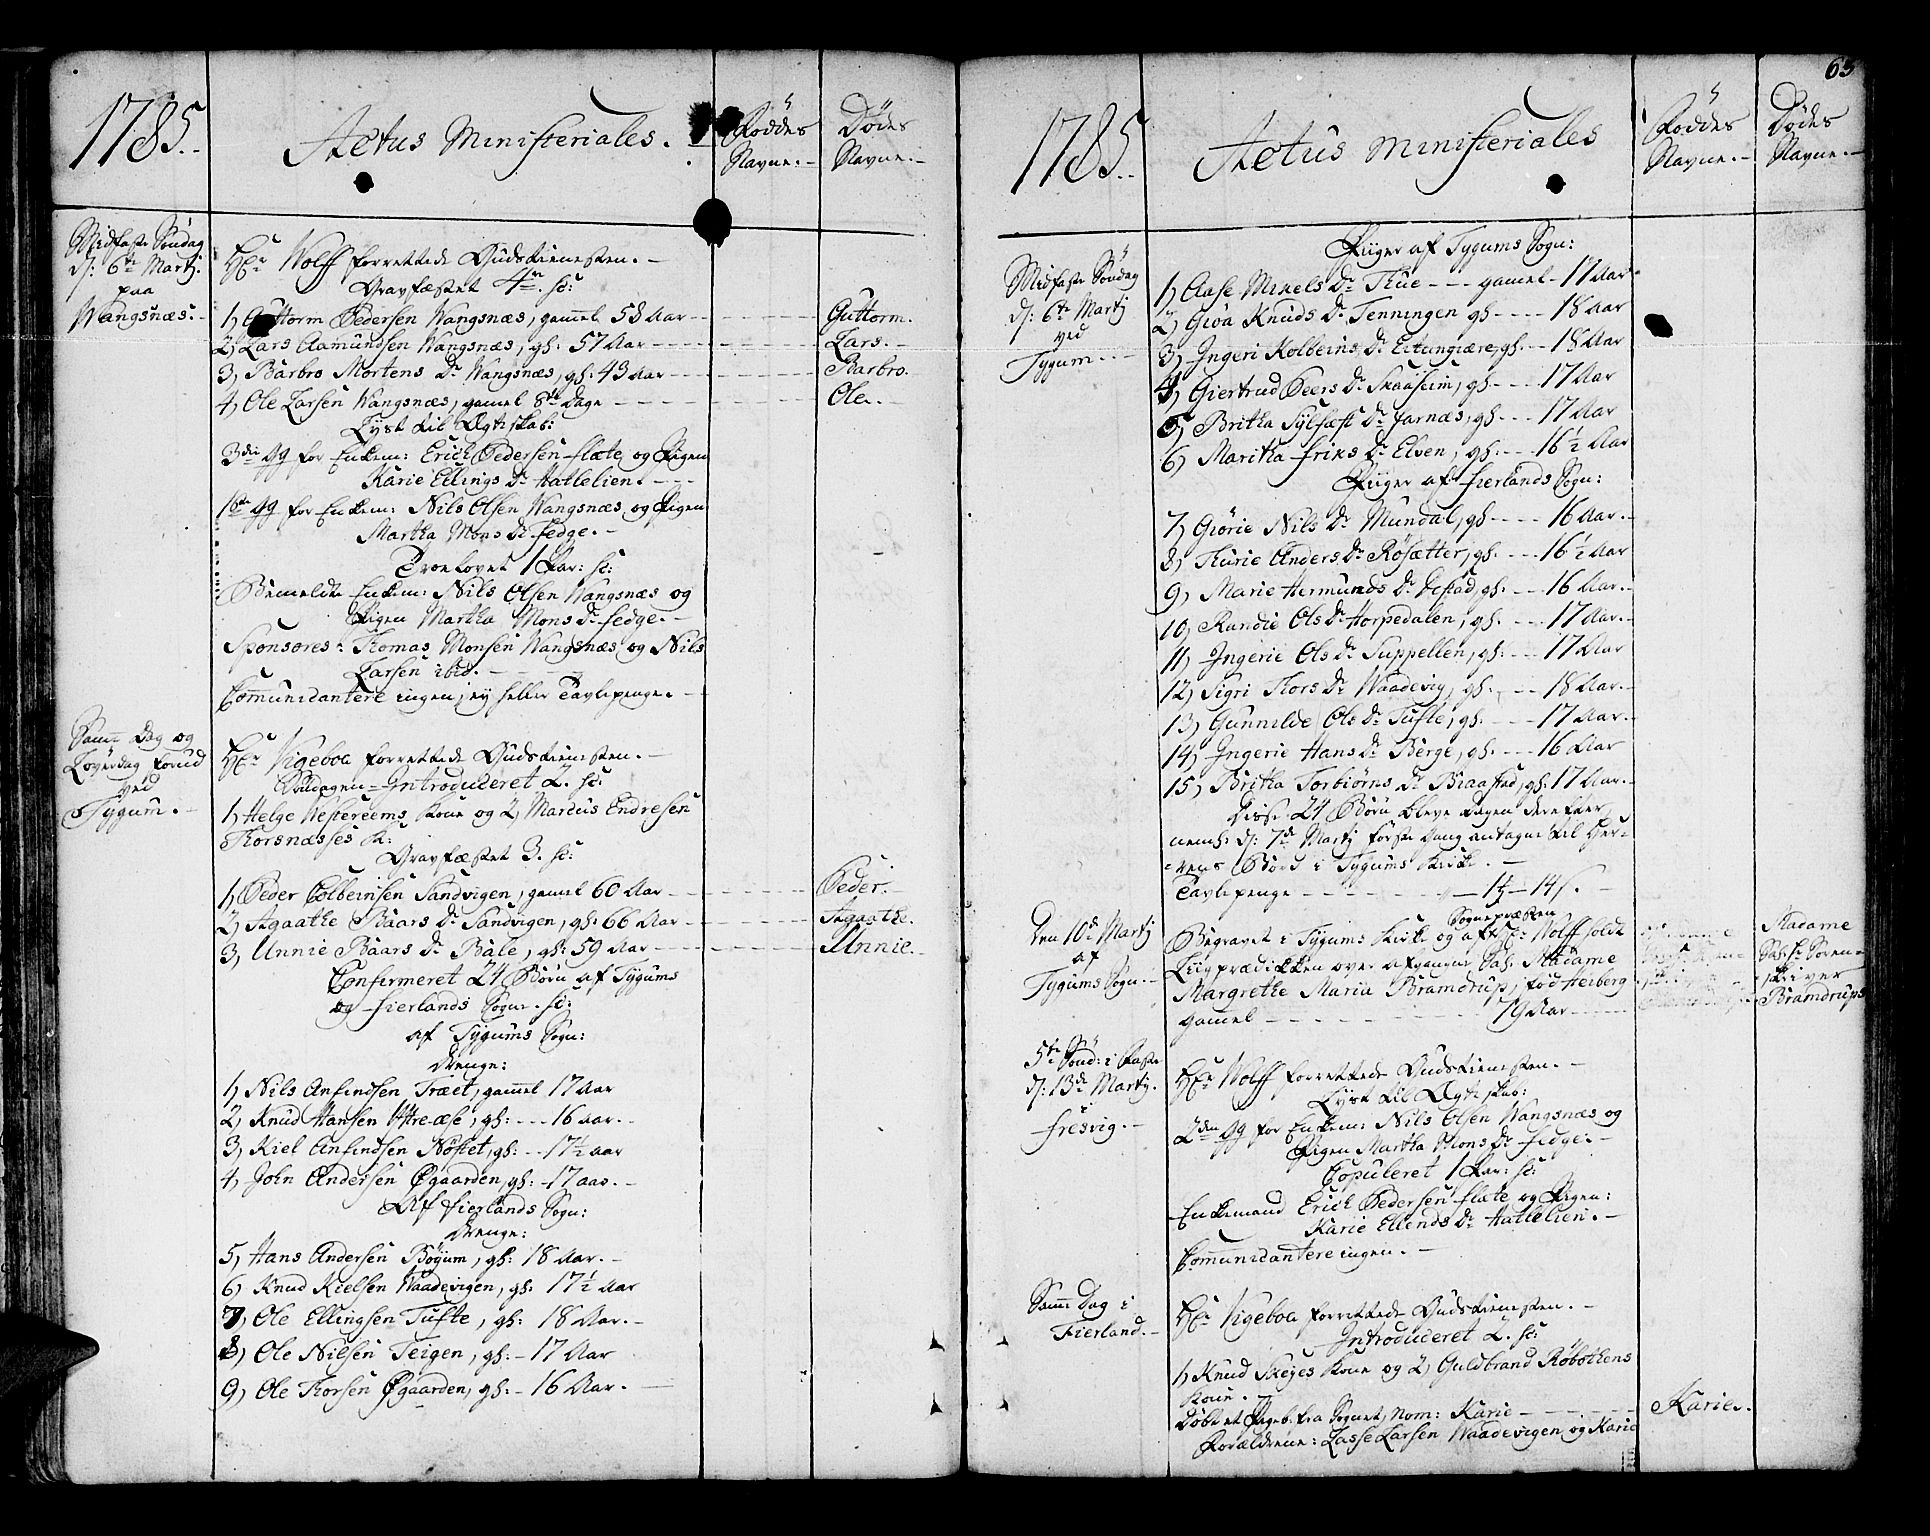 1785.
Actus Ministeriales.
Fødde Navne.
Døde Navne.
Midfaste Søndag
d: 6te Martj.
paa
Wangsnæs.
Hr Wolff forrettede Gudstienesten.
Gravfæstet 4re. sc:
1, Guttorm Pedersen Wangsnæs, gamel 58 Aar Guttorm.
2, Lars Aamundsen Wangsnæs, gl: 57 Aar Lars.
3, Barbro Mortens Dr Wangsnæs, gl: 43 Aar Barbro.
4, Ole Larsen Wangsnæs, gamel 8te Dage Ole.
Lyst til Ægteskab:
3die Gg for Enkem: Erich Pedersen Flæte og Pigen
Karie Ellings Dr Hatlelien.
1ste Gg for Enkem: Nils Olsen Wangsnæs og Pigen
Martha Mons Dr Fedge.
Troelovet 1 Par: sc:
Bemeldte Enkem: Nils Olsen Wangsnæs og
Pigen Martha Mons Dr Fedge.
Sponsores: Thomas Monsen Wangsnæs og Nils
Larsen ibid.
Comunicantere ingen, ey heller Tavlepenge.
Sam: Dag og
Løverdag forud
ved
Tygum.
Hr Vigeboa forrettede Gudstienesten.
Introduceret 2. sc:
1, Helge Westereems Kone og 2, Marcus Endresen
Thorsnæsses K:
Gravfæstet 3. sc:
1, Peder Colbeinsen Sandvigen, gamel 60 Aar Peder.
2, Agaathe Baars Dr Sandvigen, gl: 66 Aar Agaathe.
3, Unnie Baars Dr Bale, gl: 59 Aar Unnie.
Confirmeret 24 Børn af Tygums
og Fierlands Sogne. sc:
af Tygums Sogn:
Drenge:
1, Nils Anfindsen Træet, gamel 17 Aar
2, Knud Hansen Ittre-æse, gl: 16 aar.
3, Kiel Anfindsen Nøstet, gl: 17½ aar
4, John Andersen Øgaarden, gl: 17 aar.
Af Fierlands Sogn:
Drenge:
5, Hans Andersen Bøyum, gl: 18 Aar.
6, Knud Kielsen Waadevigen, gl: 17½ Aar
7, Ole Ellingsen Tufte, gl: 18 Aar.
8, Ole Nielsen Teigen, gl: 17 Aar
9, Ole Thorsen Øgaarden, gl: 16 Aar.
63
1785.
Actus Ministeriales
Fødde Navne.
Døde Navne.
Midfaste Søndag
d: 6te Martj
ved
Tygum.
Piiger af Tygums Sogn:
1, Aase Mikels Dr Thue gamel 17 Aar
2, Giøa Knuds Dr Fenningen gl: 18 Aar
3, Ingeri Kolbeins Dr Eitungiære, gl: 18 Aar
4, Giertrud Peers Dr Skaaseim, gl: 17 Aar
5, Britha Sylfæst Dr Jarnæs, gl: 17 Aar
6, Maritha Friks Dr Elven, gl: 16½ Aar
Piiger af Fierlands Sogn:
7, Giørie Nils Dr Mundal, gl: 16 Aar.
8, Thurie Anders Dr Røsætter, gl: 16½ Aar
9, Marie Hermunds Dr Distad, gl: 16 Aar.
10, Randie Ols Dr Horpedalen, gl: 17 Aar.
11, Ingerie Ols Dr Suppellen, gl: 17 Aar
12, Sigri Thors Dr Waadevig, gl: 18 Aar.
13, Gunnilde Ols Dr Tufte, gl: 17 Aar.
14, Ingerie Hans Dr Berge, gl: 16 Aar
15, Britha Torbiørns Dr Braastad, gl: 17 Aar.
Disse 24 Børn bleve Dagen derefter,
neml: d: 7de Martj første Gang antagne til Her-
rens Bord i Tygums Kirke.
Tavlepenge 14 s.
Den 10de Martj
af
Tygums Sogn.
Begravet i Tygums Kirke og af Sognepræsten Hr: Wolff holdt
Liigprædikken over afgangne Sal: Madame
Margrethe Maria Bramdrup, fød Heiberg
gamel 79 Aar
Madame
Sal: Hr Soren-
skriver
Bramdrups
5te Sønd: i Faste
d: 13de Martj.
Fresvig.
Hr Wolff forrettede Gudstienesten.
Lyst til Ægteskab:
2den Gg for Enkem: Nils Olsen Wangsnæs og
Pigen Martha Mons Dr Fedge.
Copuleret 1 Par: sc:
Enkemand Erich Pedersen Flæte og Pigen:
Karie Ellends Dr Hatlelien.
Comunicantere ingen.
Sam: Dag i
Fierland.
Hr Vigeboa forrettede Gudstienesten.
Introduceret 2. sc:
1, Knud Skeyes Kone og 2, Guldbrand Røbothens
Kone.
Døbt et Pigeb: fra Sognet, Nom: Karie Karie.
Forældrene: Lasse Larsen Waadevigen og Karie